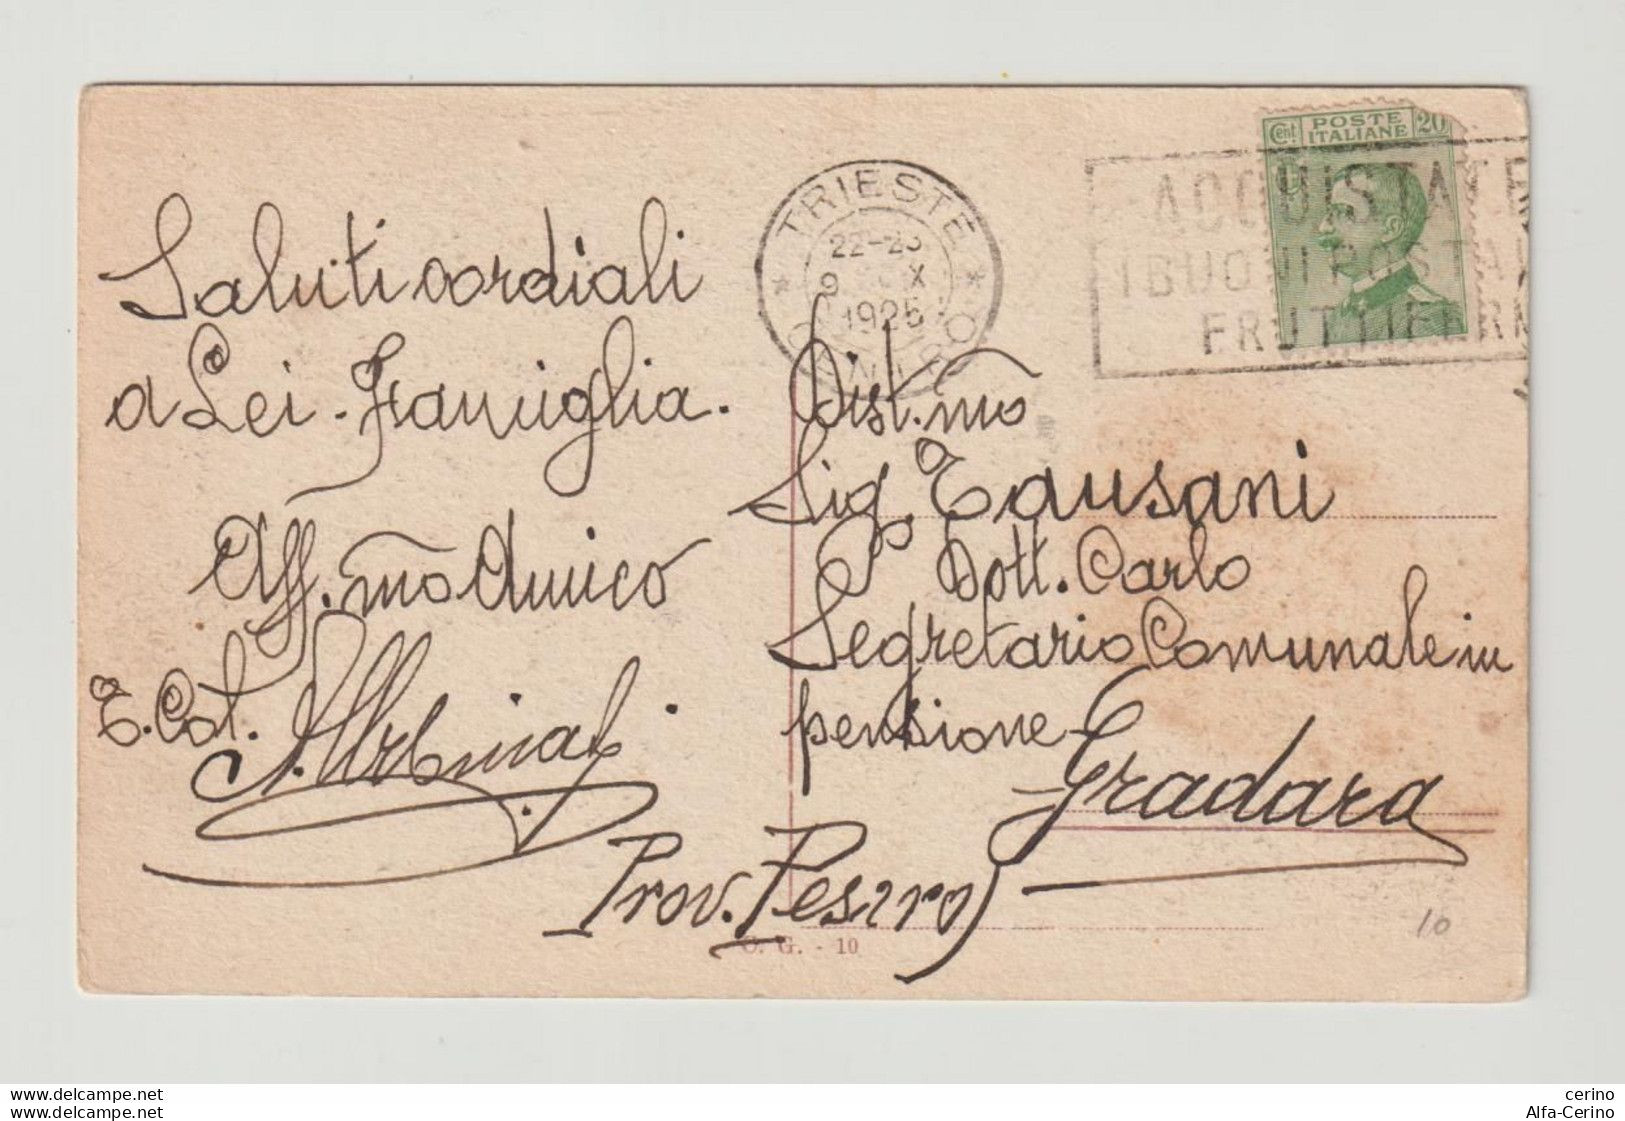 Cent POSTE ITALIANE 20
TRIESTE
22-23
9 X
1925
ACQUISTATE
I BUONI POSTALI
FRUTTIFERI
Saluti cordiali
a Lei - Famiglia.
Aff.mo Amico
T. Col.
Dist.mo
Sig. Tausani
Dott. Carlo
Segretario Comunale in
pensione -
Gradara
Prov. Pesaro
O. G. - 10
10
www.delcampe.net
www.delcampe.net
cerino
Alfa-Cerino